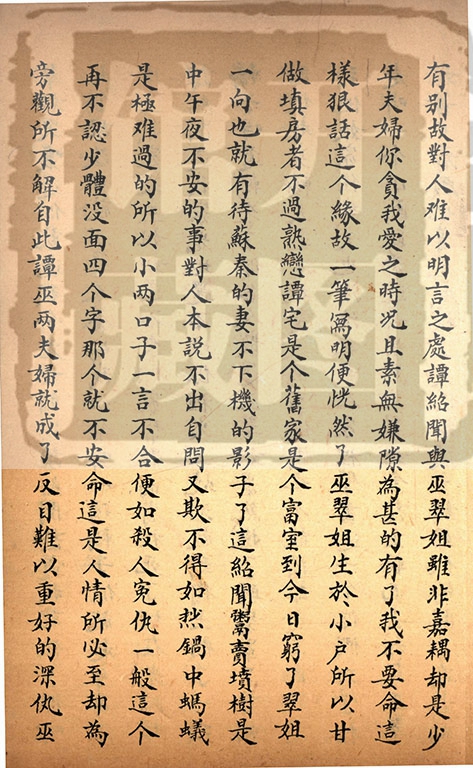 有别故對人难以明言之處譚紹聞與巫翠姐雖非嘉耦却是少
年夫婦你貪我愛之時况且素無嫌隙為甚的有了我不要命這
樣狠話這个緣故一筆寫明便恍然了巫翠姐生於小户所以甘
做填房者不過熟戀譚宅是个舊家是个富室到今日窮了翠姐
一向也就有待蘇秦的妻不下機的影子了這紹聞鬻賣墳樹是
中午夜不安的事對人本説不出自問又欺不得如烈鍋中螞蟻
是極难過的所以小两口子一言不合便如殺人寃仇一般這个
再不認少體没面四个字那个就不安命這是人情所必至却為
旁觀所不解自此譚巫两夫婦就成了反目難以重好的深仇巫